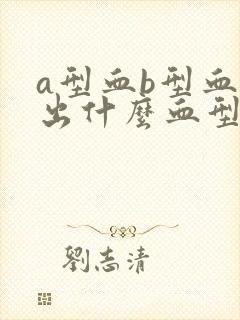 a型血b型血
出什麼血型
劉志清